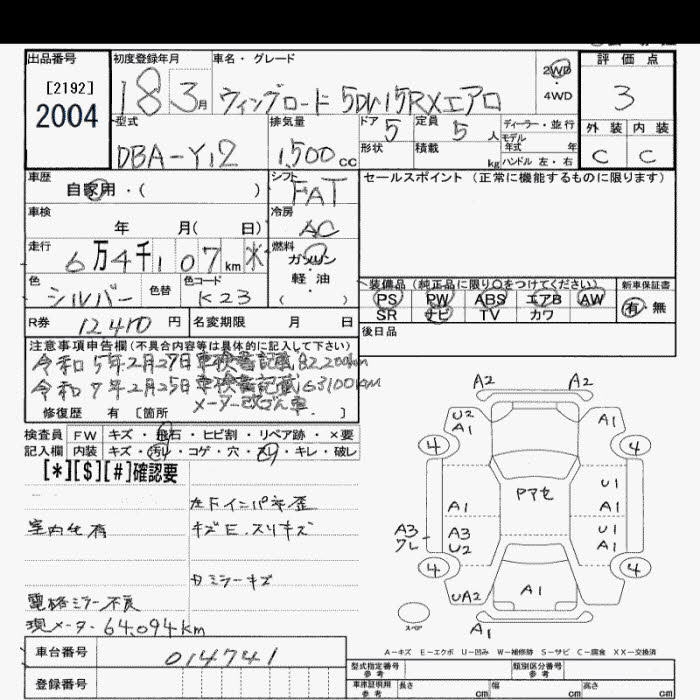 出品番号
[2192]
2004
初度登録年月
18 3月
車名・グレード
ウィングロード 5DW 15RXエアロ
2WD
4WD
評価点
3
外装 内装
C C
型式
DBA-Y12
排気量
1,500cc
ドア 5
定員 5人
形状
積載 kg
ディーラー・並行
モデル年式 年式
ハンドル 左・右
車歴
自家用・( )
シフト
FAT
車検
年 月( 日)
冷房
AC
走行
6万4千107km
燃料
ガソリン
軽・油
( )
色
シルバー
色替
色コード
K23
R券 12410円
名変期限 月 日
セールスポイント (正常に機能するものに限ります)
装備品 (純正品に限り○をつけてください)
PS PW ABS エアB AW
SR ナビ TV カワ
新車保証書
有・無
後日品
注意事項申告欄(不具合内容等は具体的に記入して下さい)
令和5年2月27日車検書記載82,200km
令和7年2月25日車検書記載63100km
メーター改ざん車
修復歴 有 [箇所 ]
検査員 FW キズ・飛石・ヒビ割・リペア跡・×要
記入欄 内装 キズ・汚レ・コゲ・穴・スレ・キレ・破レ
[*][$][#]確認要
左Fインパネ歪
室内色有
キズE.スリキズ
カミラーキズ
電格ミラー不良
現メーター64.094km
車台番号 014741
登録番号
A2 A2
U2
A1
A1
4 4
Pアセ
U1
A1
A1
A3
ワレ
A3
U2
U1
A1
4 4
UA2
A1
A1
スペア
A1
A-キズ E-エクボ U-凹み W-補修跡 S-サビ C-腐食 XX-交換済
型式指定番号 参考
類別区分番号 参考
車庫証明用 参考
長さ cm
幅 cm
高さ cm